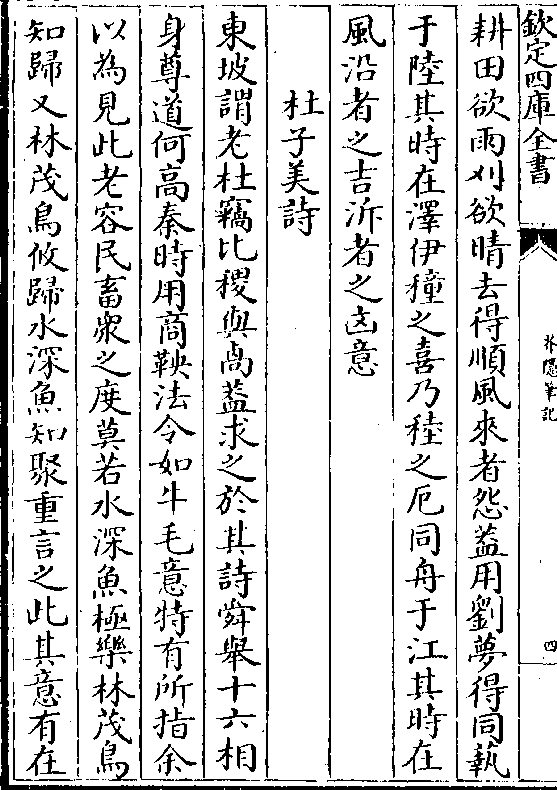 欽定四庫全書
芥隱筆記
四
耕田欲雨刈欲晴去得順風來者怨蓋用劉夢得同執
于陸其時在澤伊穜之喜乃稑之厄同舟于江其時在
風沿者之吉泝者之凶意
杜子美詩
東坡謂老杜竊比稷與卨蓋求之於其詩舜舉十六相
身尊道何高秦時用商鞅法令如牛毛意特有所指余
以為見此老容民畜衆之度莫若水深魚極樂林茂鳥
知歸又林茂鳥攸歸水深魚知聚重言之此其意有在